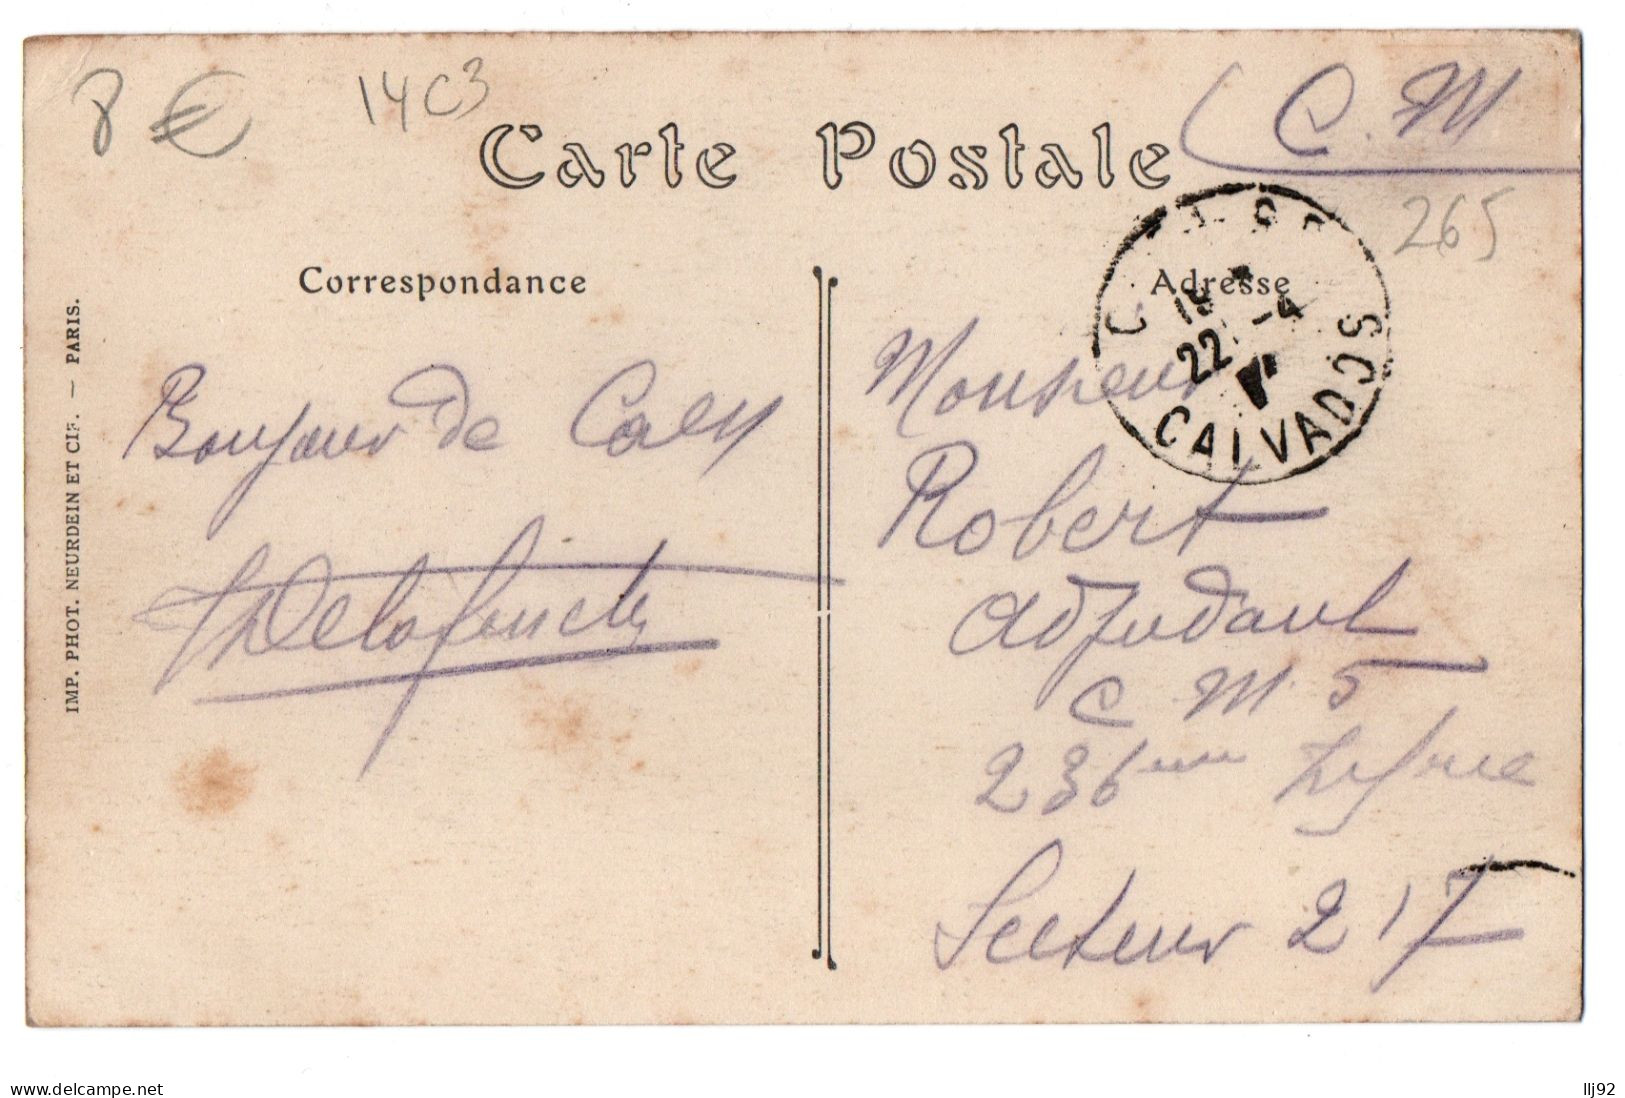 8 €
14C3
(C.M
265
Carte Postale
Correspondance
Adresse
IMP. PHOT. NEURDEIN ET CIE. — PARIS.
22 -4
CALVADOS
Bonjour de Caen
Monsieur
Robert
Adjudant
C.M.5
236eme
Secteur 217
www.delcampe.net
llj92